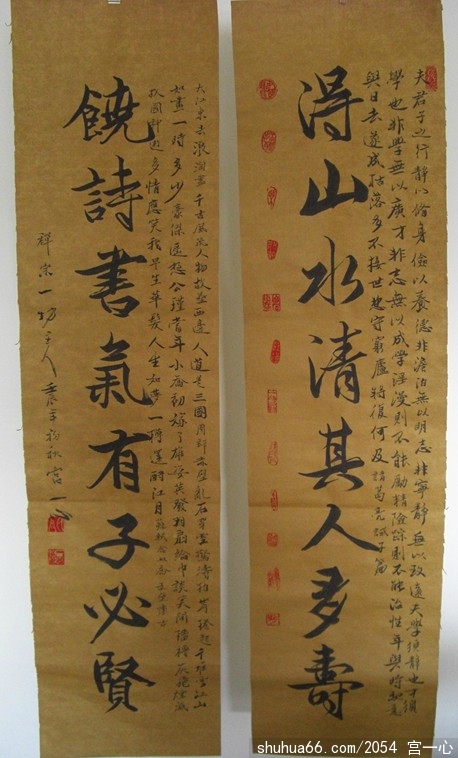 夫君子之行靜以脩身儉以養德非澹泊無以明志非寧靜無以致遠夫學須靜也才須
學也非學無以廣才非志無以成學淫漫則不能勵精險躁則不能治性年與時馳意
與日去遂成枯落多不接世悲守窮廬將復何及諸葛亮誡子篇
得山水清其人多壽
大江東去浪淘盡千古風流人物故壘西邊人道是三國周郎赤壁亂石穿空驚濤拍岸捲起千堆雪江山
如畫一時多少豪傑遙想公瑾當年小喬初嫁了雄姿英發羽扇綸巾談笑間檣櫓灰飛煙滅
故國神遊多情應笑我早生華髮人生如夢一樽還酹江月蘇軾念奴嬌赤壁懷古
饒詩書氣有子必賢
祥宗一坊主人壬辰年初秋宮一心
shuhua66.com/2054 宫一心